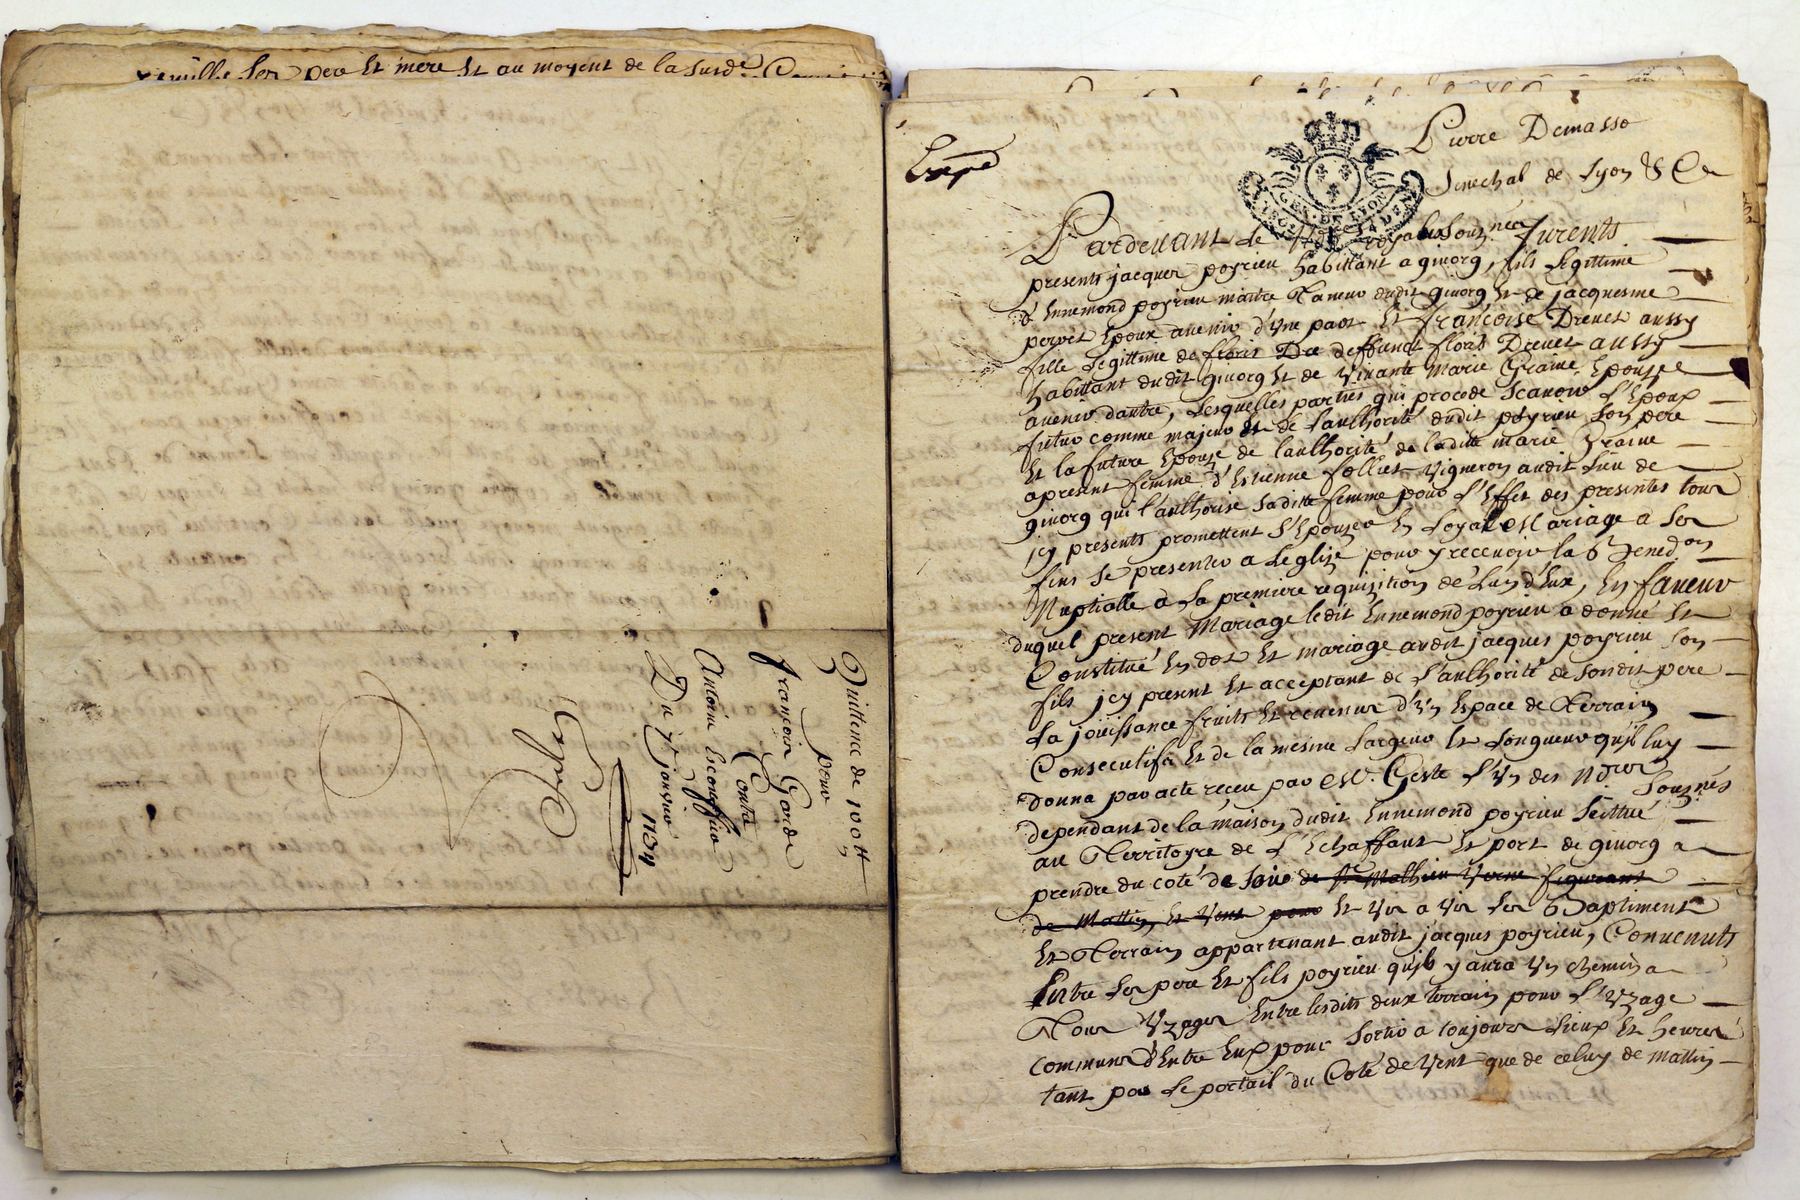 famille ses pere Et mere Et au moyent de la susd.e
Quittence de 100 tt
pour
francois Garde
Contre
Antoine Escoffier
Du 7 janvier
1734
Expé
Expé
Pierre Demasso
Senechal de Lyon & Ca
GEN. DE LYON
Pardevant Le Nore royal Souz.né furents
presents jacques poyrieu habittant a givorg, fils Legittime
d'Ennemond poyrieu maitre Taneur dudit givorg Et de jacquesme
pervet Epoux avenir d'Une part Et françoise Drevet aussy
fille Legittime de floris Dre deffunct floris Drevet aussy
habittant dudit givorg Et de Vivante Marie Graine Epouse
avenir dautre, Lesquelles parties qui procede Scavoir L'Epoux
futur comme majeur Et de Lauthorité dudit poyrieu Son pere
Et la future Epouse de lauthorité de laditte marie Graine
apresent femme d'Estienne folliet Vigneron audit Lieu de
givorg qui l'authorise Saditte femme pour L'Effet des presentes tous
jcy presents promettent S'Epouser En Loyal Mariage a Ses
fins Se presenter a Leglize pour y recevoir la Benedon
Nuptialle a La premiere requizition de Lun d'Eux, En faveur
duquel present Mariage ledit Ennemond poyrieu a donné Et
Constitué En dot Et mariage audit jacques poyrieu Son
fils jcy present Et acceptant de L'authorité de Sondit pere
La jouissance fruits Et revenus d'Un Espace de Terrain
Consecutif Et de la mesme Largeur Et Longueur qu'jl luy
donna par acte receu par Me. Geste L'Un des Nores Souz.nés
dependant de la maison dudit Ennemond poyrieu Scittué
au Territoyre de L'Echaffaut Et port de givorg a
prendre du coté de Soir de Sr Mathieu Verne figurant
de Mattin, Et Vent pour Et Vis a Vis Les Baptiment
Et Terrain appartenant audit jacques poyrieu, Convenuts
Entre Les pere Et fils poyrieu qu'jl y aura Un chemin a
Tous Uzages Entre lesdits deux terrain pour L'Uzage
commun d'Entre Eux pour Sortir a toujours Lieux Et heures
tant par Le portail du Coté de Vent que de celuy de mattin